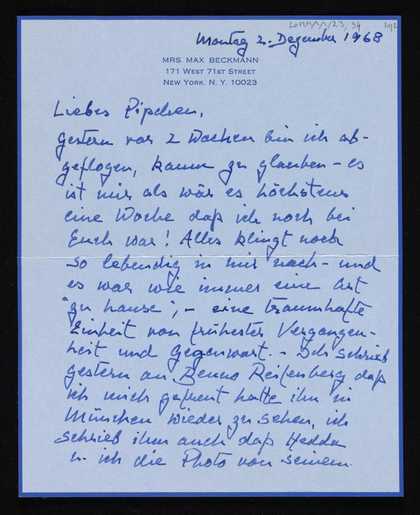 Montag 2. Dezember 1968
MRS MAX BECKMANN
171 WEST 71ST STREET
NEW YORK, N. Y. 10023
Liebes Pipchen,
gestern vor 2 Wochen bin ich ab-
geflogen, kaum zu glauben – es
ist mir als wär es höchstens
eine Woche daß ich noch bei
Euch war! Alles klingt noch
so lebendig in mir nach – und
es war wie immer eine Art
"zu hause", – eine traumhafte
Einheit von frühester Vergangen-
heit und Gegenwart. – Ich schrieb
gestern an Benno Reifenberg daß
ich mich gefreut hatte ihn in
München wieder zu sehen, ich
schrieb ihm auch daß Hedda
u. ich die Photo von seinem